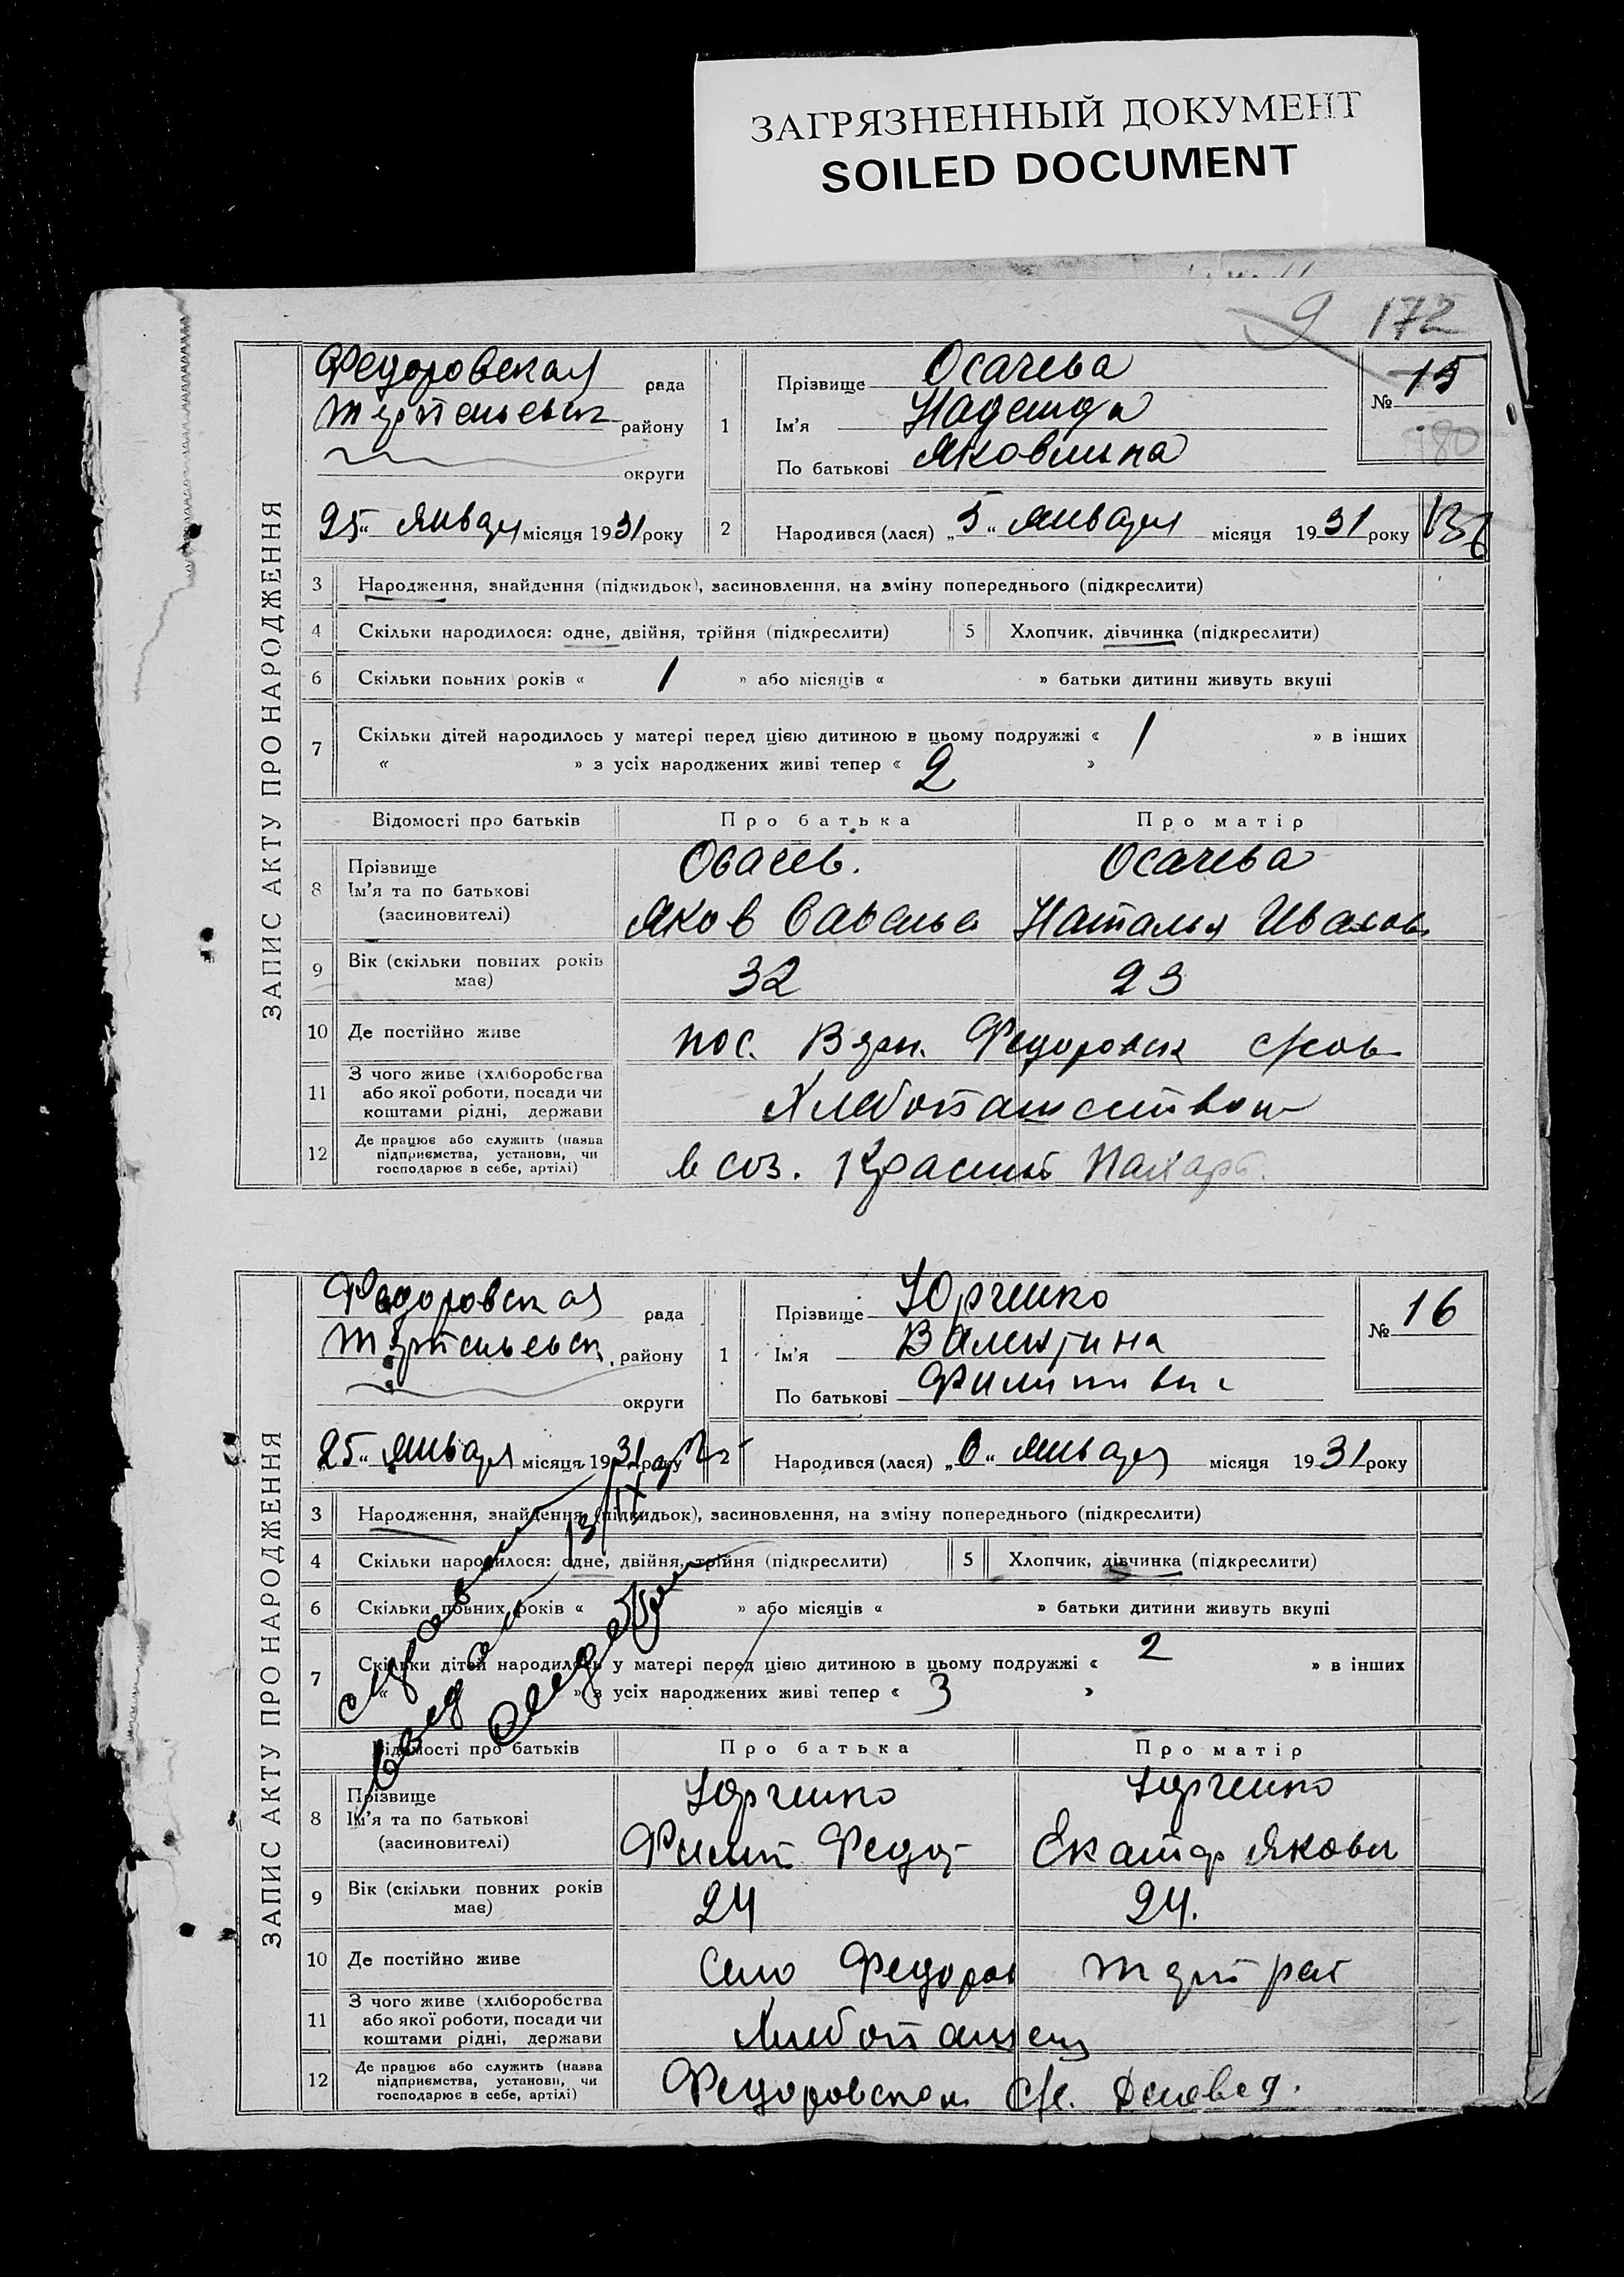 ЗАГРЯЗНЕННЫЙ ДОКУМЕНТ
SOILED DOCUMENT
9 172
ЗАПИС АКТУ ПРО НАРОДЖЕННЯ
Федоровская рада
району
округи
25 „ января місяця 1931 року
1 Прізвище Осачева
Ім'я Надежда
По батькові Яковльна
№ 15
180
2 Народився (лася) „ 5 “ января місяця 1931 року
3 Народження, знайдення (підкидьок), засиновлення, на зміну попереднього (підкреслити)
4 Скільки народилося: одне, двійня, трійня (підкреслити) 5 Хлопчик, дівчинка (підкреслити)
6 Скільки повних років « 1 » або місяців « » батьки дитини живуть вкупі
7 Скільки дітей народилось у матері перед цією дитиною в цьому подружжі « 1 » в інших
« » з усіх народжених живі тепер « 2 »
Відомості про батьків Про батька Про матір
8 Прізвище
Ім'я та по батькові
(засновителі)
Осачева
Яков Савелье Наталья Иванов
9 Вік (скільки повних років
має) 32 23
10 Де постійно живе пос. Федоровск
11 З чого живе (хліборобства
або якої роботи, посади чи
коштами рідні, держави
Хлебопашеством
12 Де працює або служить (назва
підприємства, установи, чи
господарює в себе, артілі)
в соз. Красный Пахарь.
ЗАПИС АКТУ ПРО НАРОДЖЕННЯ
Федоровская рада
району
округи
25 „ января місяця 1931 року
1 Прізвище Юрченко
Ім'я Валентина
По батькові
№ 16
2 Народився (лася) „ 6 “ января місяця 1931 року
3 Народження, знайдення (підкидьок), засиновлення, на зміну попереднього (підкреслити)
4 Скільки народилося: одне, двійня, трійня (підкреслити) 5 Хлопчик, дівчинка (підкреслити)
6 Скільки повних років « » або місяців « » батьки дитини живуть вкупі
7 Скільки дітей народилось у матері перед цією дитиною в цьому подружжі « 2 » в інших
« » з усіх народжених живі тепер « 3 »
Відомості про батьків Про батька Про матір
8 Прізвище
Ім'я та по батькові
(засиновителі)
Юрченко Юрченко
Филип Федор Екатер Яковл
9 Вік (скільки повних років
має) 24 24.
10 Де постійно живе Село Федоров
11 З чого живе (хліборобства
або якої роботи, посади чи
коштами рідні, держави
Хлебопашец
12 Де працює або служить (назва
підприємства, установи, чи
господарює в себе, артілі)
Федоровском